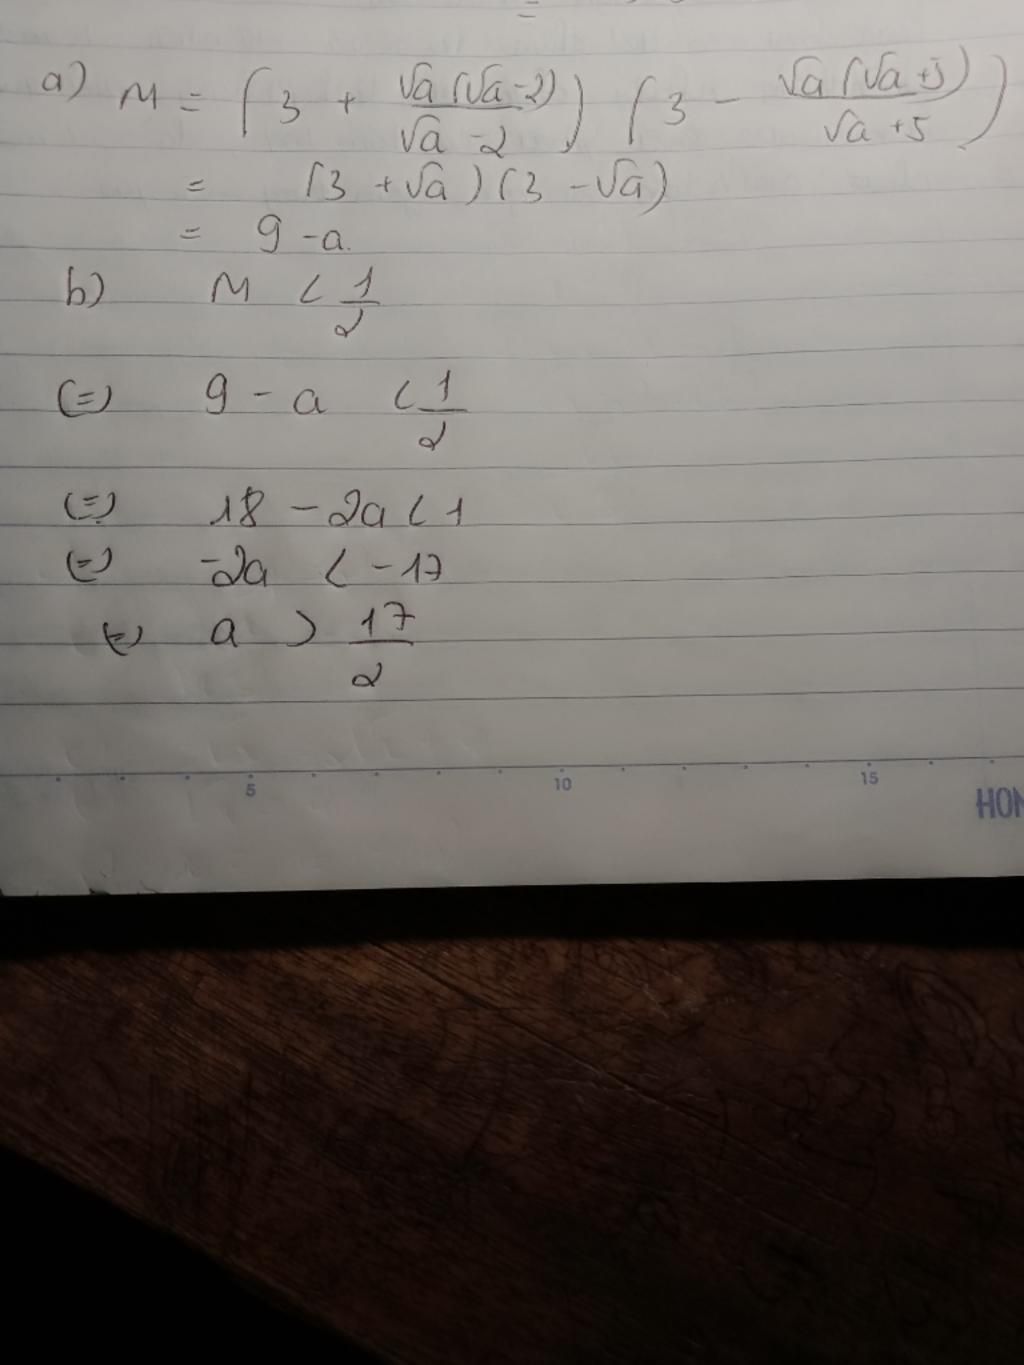 a) M = (3 + √a(√a-2)/√a-2) (3 - √a(√a+5)/√a+5)
= (3 + √a)(3 - √a)
= 9 - a.
b) M < 1/2
(=) 9 - a < 1/2
(=) 18 - 2a < 1
(=) -2a < -17
(=) a > 17/2
5 10 15
HON